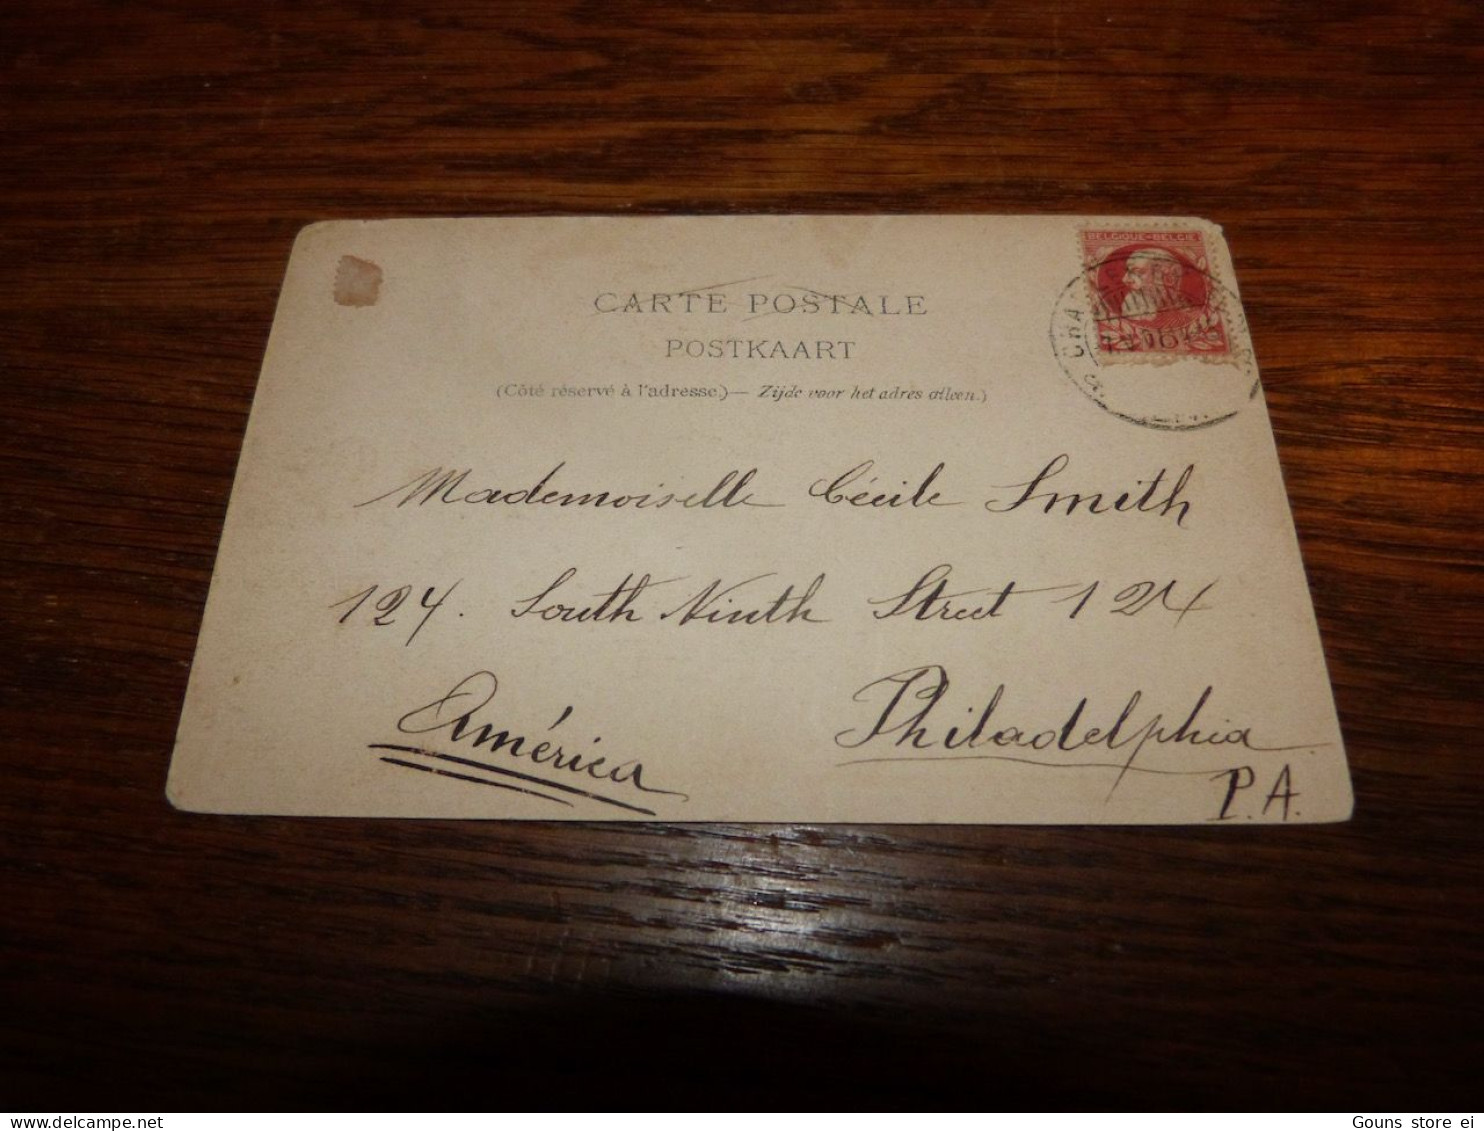 BELGIQUE-BELGIE
CARTE POSTALE
POSTKAART
(Côté réservé à l'adresse.)— Zijde voor het adres alleen.)
Mademoiselle Cécile Smith
124. South Ninth Street 124
América Philadelphia
P.A.
Gouns store ei